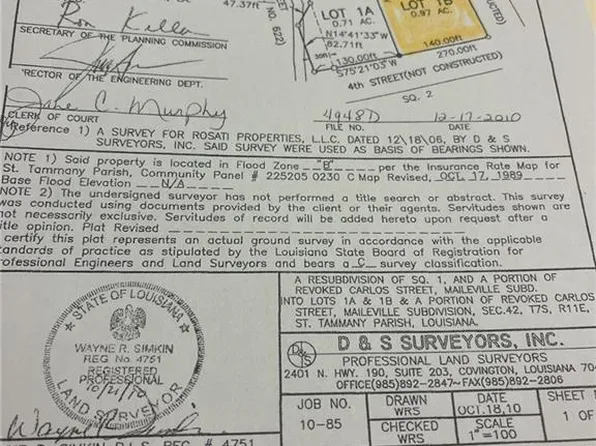 Ron Keller
SECRETARY OF THE PLANNING COMMISSION
RECTOR OF THE ENGINEERING DEPT.
Jane C. Murphy
CLERK OF COURT
4948D
FILE NO.
12-17-2010
DATE
47.37ft
NO 622)
LOT 1A
0.71 AC.
N14°41'33"W
82.71ft
LOT 1B
0.97 AC.
140.00ft
130.00ft
270.00ft
S75°21'03"W
4th STREET(NOT CONSTRUCTED)
SQ. 2
Reference 1) A SURVEY FOR ROSATI PROPERTIES, L.L.C. DATED 12\18\06, BY D & S
SURVEYORS, INC. SAID SURVEY WERE USED AS BASIS OF BEARINGS SHOWN.
NOTE 1) Said property is located in Flood Zone "B" per the Insurance Rate Map for
St. Tammany Parish, Community Panel # 225205 0230 C Map Revised, OCT 17, 1989
Base Flood Elevation N/A
NOTE 2) The undersigned surveyor has not performed a title search or abstract. This survey
was conducted using documents provided by the client or their agents. Servitudes shown are
not necessarily exclusive. Servitudes of record will be added hereto upon request after a
title opinion. Plat Revised
certify this plat represents an actual ground survey in accordance with the applicable
standards of practice as stipulated by the Louisiana State Board of Registration for
Professional Engineers and Land Surveyors and bears a C survey classification.
STATE OF LOUISIANA
WAYNE R. SIMKIN
REG No. 4751
REGISTERED
PROFESSIONAL
10/21/10
LAND SURVEYOR
Wayne R. Simkin
SIMKIN P.L.S. REG. # 4751
A RESUBDIVISION OF SQ. 1, AND A PORTION OF
REVOKED CARLOS STREET, MAILEVILLE SUBD.
INTO LOTS 1A & 1B & A PORTION OF REVOKED CARLOS
STREET, MAILEVILLE SUBDIVISION, SEC.42, T7S, R11E,
ST. TAMMANY PARISH, LOUISIANA.
D & S SURVEYORS, INC.
PROFESSIONAL LAND SURVEYORS
2401 N. HWY. 190, SUITE 203, COVINGTON, LOUISIANA 704
OFFICE(985)892-2847~FAX(985)892-2806
JOB NO.
10-85
DRAWN
WRS
CHECKED
WRS
DATE
OCT.18,10
SCALE
1"=100'
SHEET
1 OF